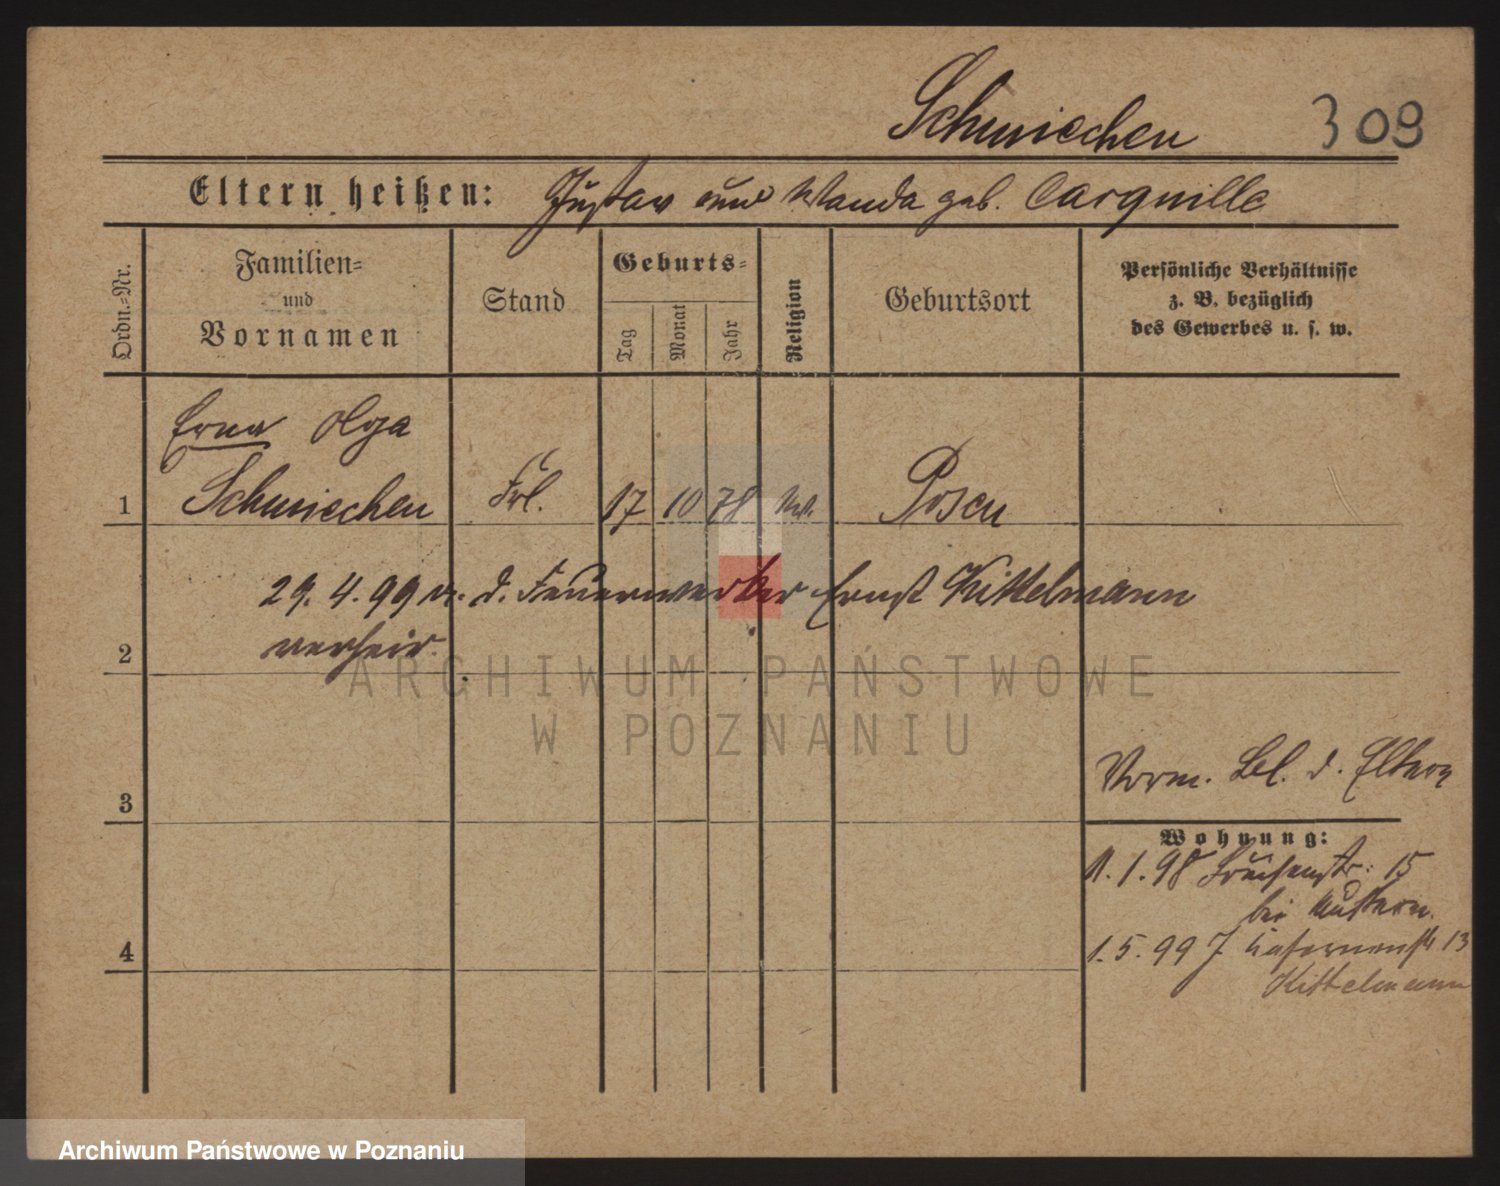 Schmiechen 309
Eltern heißen: Gustav und Wanda geb. Carquille
Ordn.-Nr.
Familien-
und
Vornamen
Stand
Geburts-
Tag
Monat
Jahr
Religion
Geburtsort
Persönliche Verhältnisse
z. B. bezüglich
des Gewerbes u. s. w.
Erna Olga
1 Schmiechen Frl. 17 10 78 Posen
29. 4. 99 m. d. Feuerwerker Ernst Kittelmann
2 verheir.
ARCHIWUM PAŃSTWOWE
W POZNANIU
3
Vorm. Bl. d. Eltern
Wohnung:
1. 98 15
bei Muttern.
4
1. 5. 99 Kasernenstr 13
Kittelmann
Archiwum Państwowe w Poznaniu